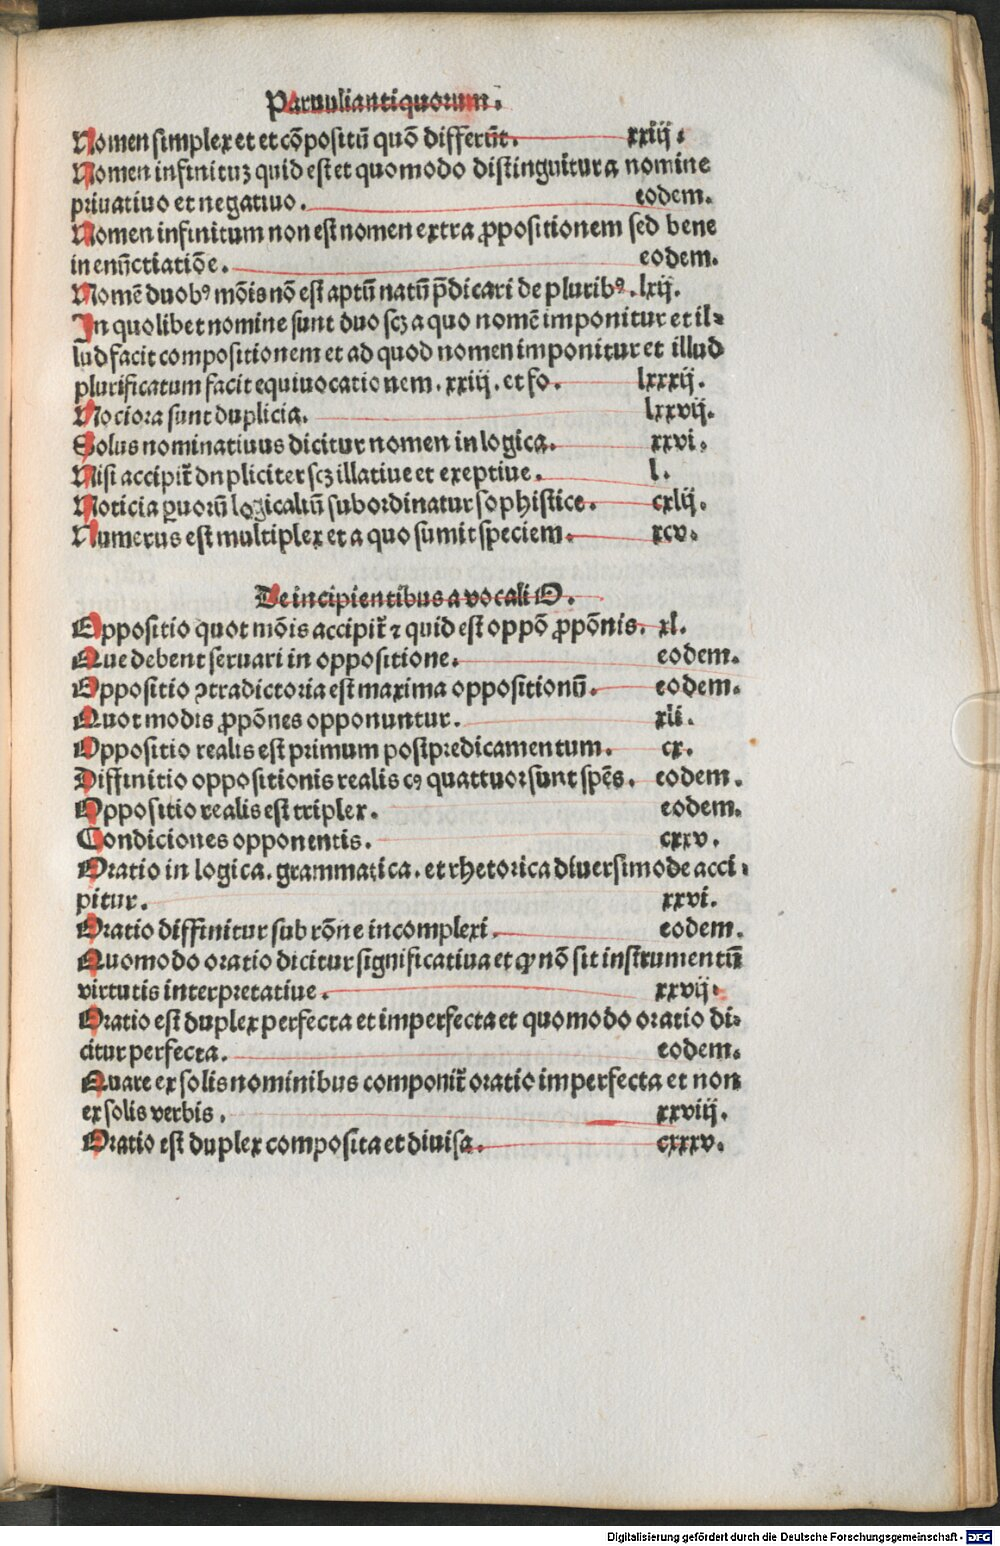 Paruuli antiquorum.
Nomen simplex et et cōpositū quō differūt. xxiij.
Nomen infinituꝫ quid est et quomodo distinguitur a nomine
priuatiuo et negatiuo. eodem.
Nomen infinitum non est nomen extra ꝓpositionem sed bene
in enūctiatiōe. eodem.
Nomē duobꝰ mōis nō est aptū natū p̄dicari de pluribꝰ. lxij.
In quolibet nomine sunt duo scꝫ a quo nomē imponitur et il⸗
lud facit compositionem et ad quod nomen imponitur et illud
plurificatum facit equiuocationem. xxiij. et fo. lxxxij.
Nociora sunt duplicia. lxxvij.
Solus nominatiuus dicitur nomen in logica. xxvi.
Nisi accipit̄ dnpliciter scꝫ illatiue et exeptiue. l.
Noticia ꝑuorū logicaliū subordinatur sophistice. cxlij.
Numerus est multiplex et a quo sumit speciem. xcv.
De incipientibus a vocali O.
Oppositio quot mōis accipit̄ ⁊ quid est oppō ꝓpōnis. xl.
Que debent seruari in oppositione. eodem.
Oppositio ꝯtradictoria est maxima oppositionū. eodem.
Quot modis ꝓpōnes opponuntur. xli.
Oppositio realis est primum postpredicamentum. cx.
Diffinitio oppositionis realis cꝰ quattuor sunt spēs. eodem.
Oppositio realis est triplex. eodem.
Condiciones opponentis. cxxv.
Oratio in logica. grammatica. et rhetorica diuersimode acci⸗
pitur. xxvi.
Oratio diffinitur sub rōne incomplexi. eodem.
Quomodo oratio dicitur significatiua et ꝙ nō sit instrumentū
virtutis interpretatiue. xxvij.
Oratio est duplex perfecta et imperfecta et quomodo oratio di⸗
citur perfecta. eodem.
Quare ex solis nominibus componit̄ oratio imperfecta et non
ex solis verbis. xxviij.
Oratio est duplex composita et diuisa. cxxxv.
Digitalisierung gefördert durch die Deutsche Forschungsgemeinschaft - DFG